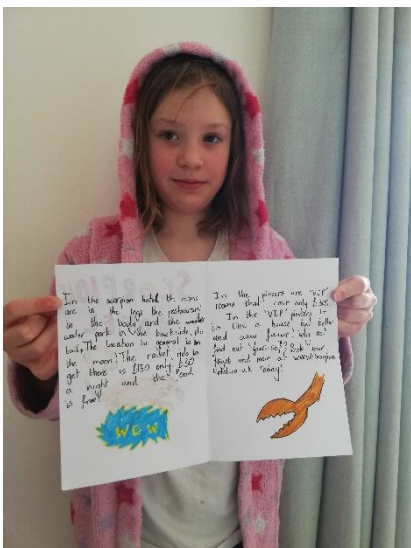 In the scorpion hotel the rooms
are in the legs the restaurant
in the body and the
water park on the backside.
body. The location in general is on
the moon! The rocket ride to
get there is £130 only £59
a night and the food
is free!
WOW
In the pincers are "VIP"
rooms that cost only £365.
In the "VIP" pincers it
is like a house but better
and way
find out your self? Book your
and more at
today!